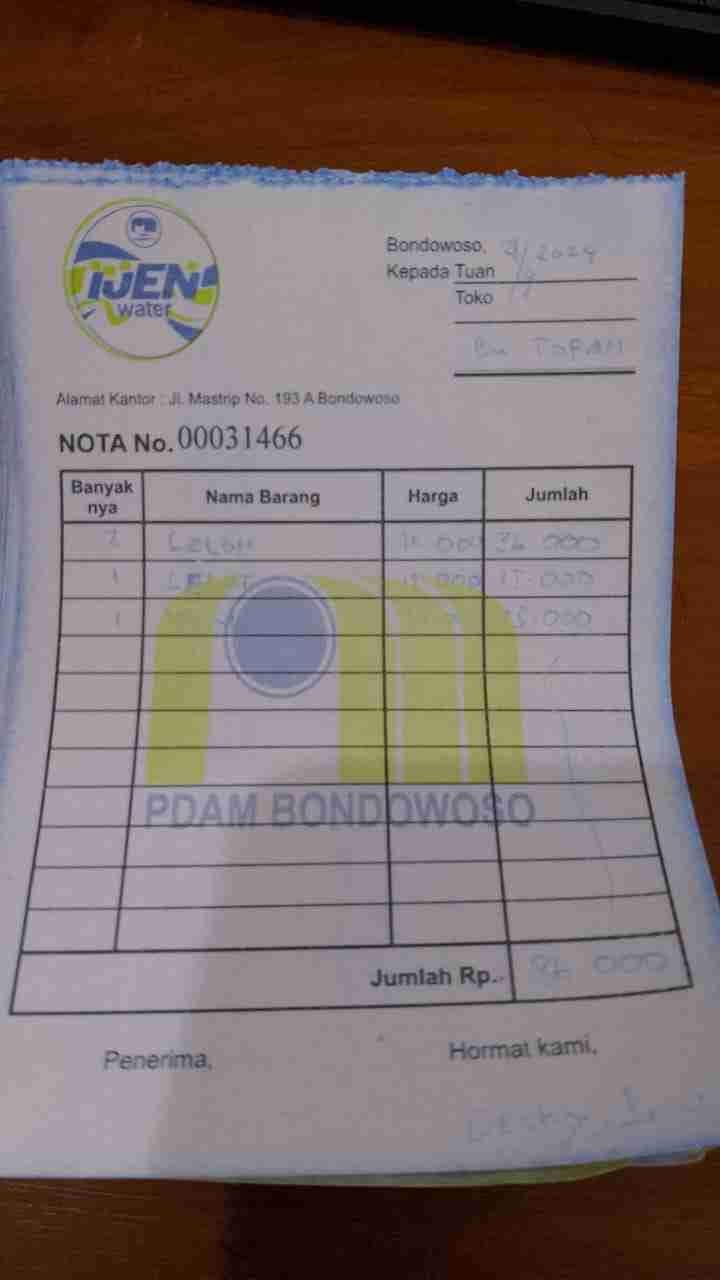 IJEN
water
Bondowoso, 2024
Kepada Tuan
Toko
Bu TOFAN
Alamat Kantor : Jl. Mastrip No. 193 A Bondowoso
NOTA No. 00031466
Banyak nya Nama Barang Harga Jumlah
2 000 36 000
1 000 17.000
1 000
PDAM BONDOWOSO
Jumlah Rp.. 000
Penerima, Hormat kami,